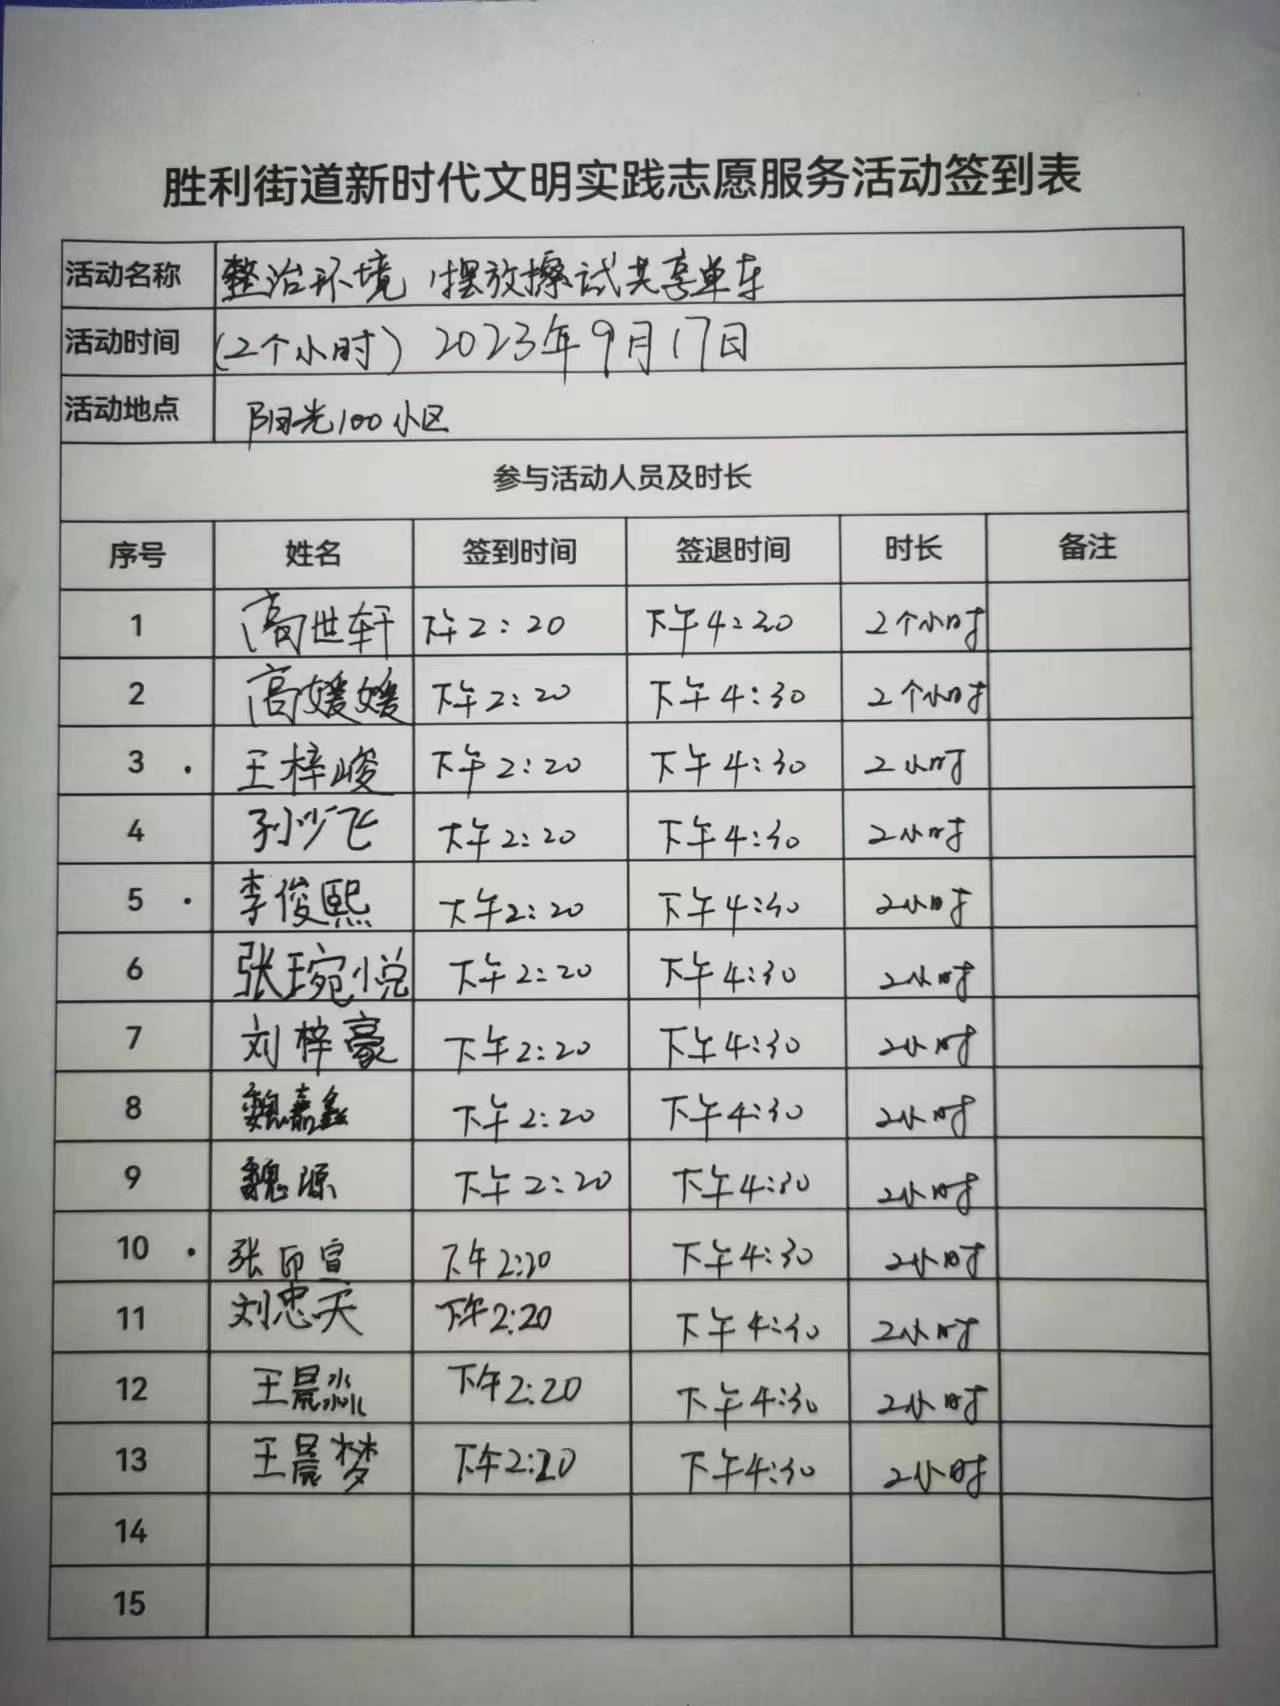 胜利街道新时代文明实践志愿服务活动签到表
活动名称 整治环境,摆放擦试共享单车
活动时间 (2个小时) 2023年9月17日
活动地点 阳光100小区
参与活动人员及时长
序号 姓名 签到时间 签退时间 时长 备注
1 高世轩 下午2:20 下午4:20 2个小时
2 高媛媛 下午2:20 下午4:30 2个小时
3 王梓峻 下午2:20 下午4:30 2小时
4 孙少飞 下午2:20 下午4:30 2小时
5 李俊熙 下午2:20 下午4:30 2小时
6 张琬悦 下午2:20 下午4:30 2小时
7 刘梓豪 下午2:20 下午4:30 2小时
8 魏嘉鑫 下午2:20 下午4:30 2小时
9 魏源 下午2:20 下午4:30 2小时
10 张 宣 下午2:20 下午4:30 2小时
11 刘忠天 下午2:20 下午4:30 2小时
12 王晨淼 下午2:20 下午4:30 2小时
13 王晨梦 下午2:20 下午4:30 2小时
14
15